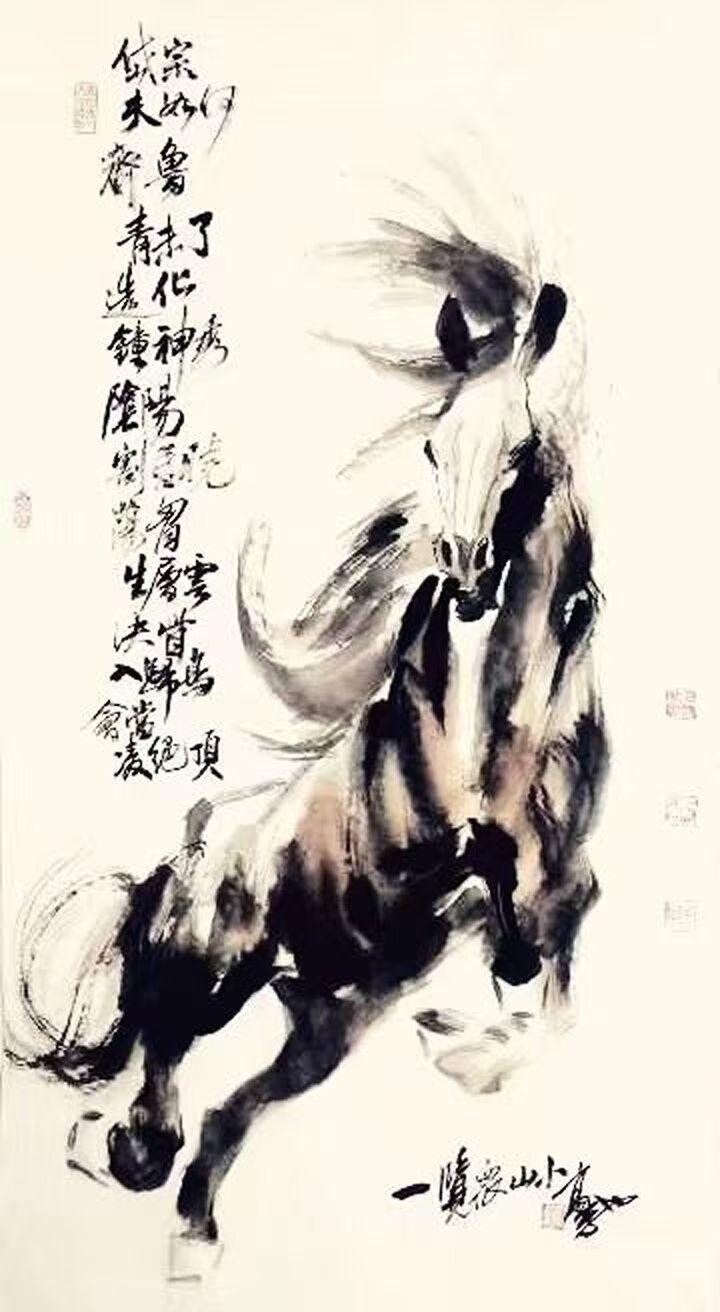 岱宗
夫如何
齊魯
青未了
造化
鍾神秀
陰陽
割昏曉
蕩胸
生層雲
決眥
入歸鳥
會當
凌絕頂
一覽衆山小